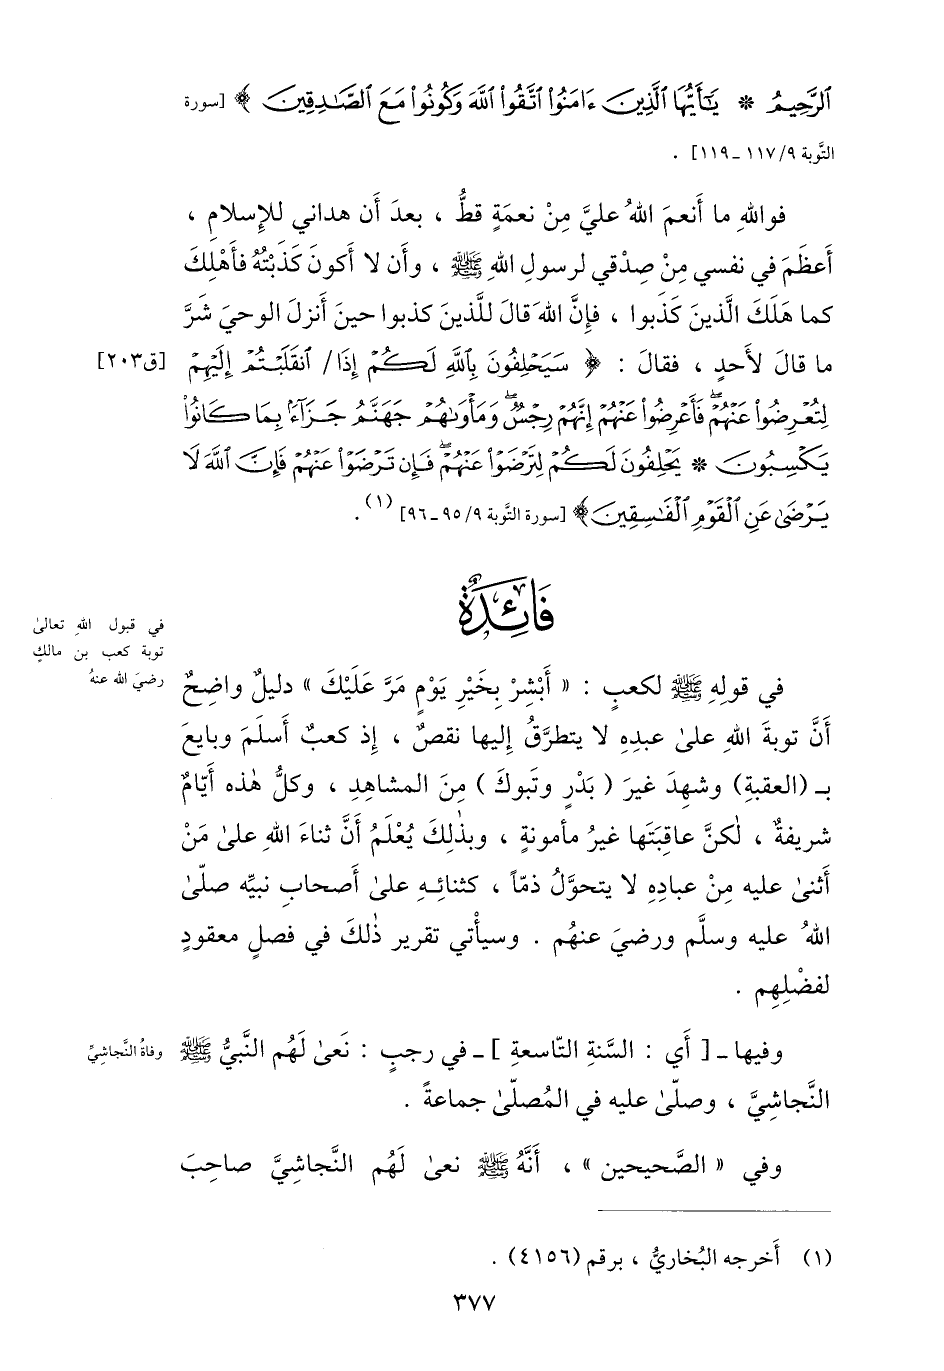 ٱلرَّحِيمُ * يَٰٓأَيُّهَا ٱلَّذِينَ ءَامَنُوا۟ ٱتَّقُوا۟ ٱللَّهَ وَكُونُوا۟ مَعَ ٱلصَّٰدِقِينَ ﴾ [سورة
التَّوبة ٩/ ١١٧ ـ ١١٩] .
فواللهِ ما أَنعمَ اللهُ عليَّ مِنْ نعمَةٍ قطُّ ، بعدَ أَن هداني للإِسلامِ ،
أَعظَمَ في نفسي مِنْ صِدْقي لرسولِ اللهِ ﷺ ، وأَن لا أَكونَ كَذَبْتُهُ فأَهْلِكَ
كما هَلَكَ الَّذينَ كَذَبوا ، فإِنَّ اللهَ قالَ للَّذينَ كذبوا حينَ أَنزلَ الوحيَ شَرَّ
ما قالَ لأَحدٍ ، فقالَ : ﴿ سَيَحْلِفُونَ بِٱللَّهِ لَكُمْ إِذَا/ ٱنقَلَبْتُمْ إِلَيْهِمْ
[ق٢٠٣]
لِتُعْرِضُوا۟ عَنْهُمْ ۖ فَأَعْرِضُوا۟ عَنْهُمْ إِنَّهُمْ رِجْسٌ ۖ وَمَأْوَىٰهُمْ جَهَنَّمُ جَزَآءًۢ بِمَا كَانُوا۟
يَكْسِبُونَ * يَحْلِفُونَ لَكُمْ لِتَرْضَوْا۟ عَنْهُمْ ۖ فَإِن تَرْضَوْا۟ عَنْهُمْ فَإِنَّ ٱللَّهَ لَا
يَرْضَىٰ عَنِ ٱلْقَوْمِ ٱلْفَٰسِقِينَ ﴾ [سورة التَّوبة ٩/ ٩٥ ـ ٩٦] (١) .
فَائِدَةٌ
في قبول اللهِ تعالىٰ
توبة كعب بن مالكٍ
رضيَ الله عنهُ
في قولِهِ ﷺ لكعبٍ : « أَبْشِرْ بِخَيْرِ يَوْمٍ مَرَّ عَلَيْكَ » دليلٌ واضِحٌ
أَنَّ توبةَ اللهِ علىٰ عبدِهِ لا يتطرَّقُ إِليها نقصٌ ، إِذ كعبٌ أَسلَمَ وبايعَ
بـ (العقبةِ) وشهِدَ غيرَ ( بَدْرٍ وتَبوكَ ) مِنَ المشاهِدِ ، وكلُّ هٰذه أَيّامٌ
شريفةٌ ، لٰكنَّ عاقِبَتَها غيرُ مأمونةٍ ، وبذٰلِكَ يُعْلَمُ أَنَّ ثناءَ اللهِ علىٰ مَنْ
أَثنىٰ عليه مِنْ عبادِهِ لا يتحوَّلُ ذمّاً ، كثنائِهِ علىٰ أَصحابِ نبيِّه صلّىٰ
اللهُ عليه وسلَّم ورضيَ عنهُم . وسيأْتي تقرير ذٰلكَ في فصلٍ معقودٍ
لفضْلِهِم .
وفيها ـ [ أَي : السَّنةِ التّاسعةِ ] ـ في رجبٍ : نَعىٰ لَهُم النَّبيُّ ﷺ
وفاةُ النَّجاشيِّ
النَّجاشِيَّ ، وصلّىٰ عليه في المُصلّىٰ جماعةً .
وفي « الصَّحيحين » ، أَنَّهُ ﷺ نعىٰ لَهُم النَّجاشِيَّ صاحِبَ
(١) أَخرجه البُخاريُّ ، برقم (٤١٥٦) .
٣٧٧